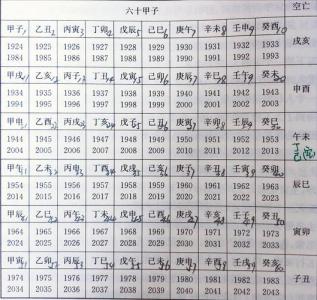 六十甲子 空亡
甲子1 乙丑2 丙寅3 丁卯 戊辰5 己巳6 庚午7 辛未8 壬申9 癸酉10 戌亥
1924 1925 1926 1927 1928 1929 1930 1931 1932 1933
1984 1985 1986 1987 1988 1989 1990 1991 1992 1993
甲戌 乙亥 丙子 丁丑 戊寅 己卯 庚辰 辛巳 壬午 癸未 申酉
1934 1935 1936 1937 1938 1939 1940 1941 1942 1943
1994 1995 1996 1997 1998 1999 2000 2001 2002 2003
甲申 乙酉 丙戌 丁亥 戊子 己丑 庚寅 辛卯 壬辰 癸巳 午未
1944 1945 1946 1947 1948 1949 1950 1951 1952 1953
2004 2005 2006 2007 2008 2009 2010 2011 2012 2013
甲午 乙未 丙申 丁酉 戊戌 己亥 庚子 辛丑 壬寅 癸卯 辰巳
1954 1955 1956 1957 1958 1959 1960 1961 1962 1963
2014 2015 2016 2017 2018 2019 2020 2021 2022 2023
甲辰 乙巳 丙午 丁未 戊申 己酉 庚戌 辛亥 壬子 癸丑 寅卯
1964 1965 1966 1967 1968 1969 1970 1971 1972 1973
2024 2025 2026 2027 2028 2029 2030 2031 2032 2033
甲寅 乙卯 丙辰 丁巳 戊午 己未 庚申 辛酉 壬戌 癸亥 子丑
1974 1975 1976 1977 1978 1979 1980 1981 1982 1983
2034 2035 2036 2037 2038 2039 2040 2041 2042 2043